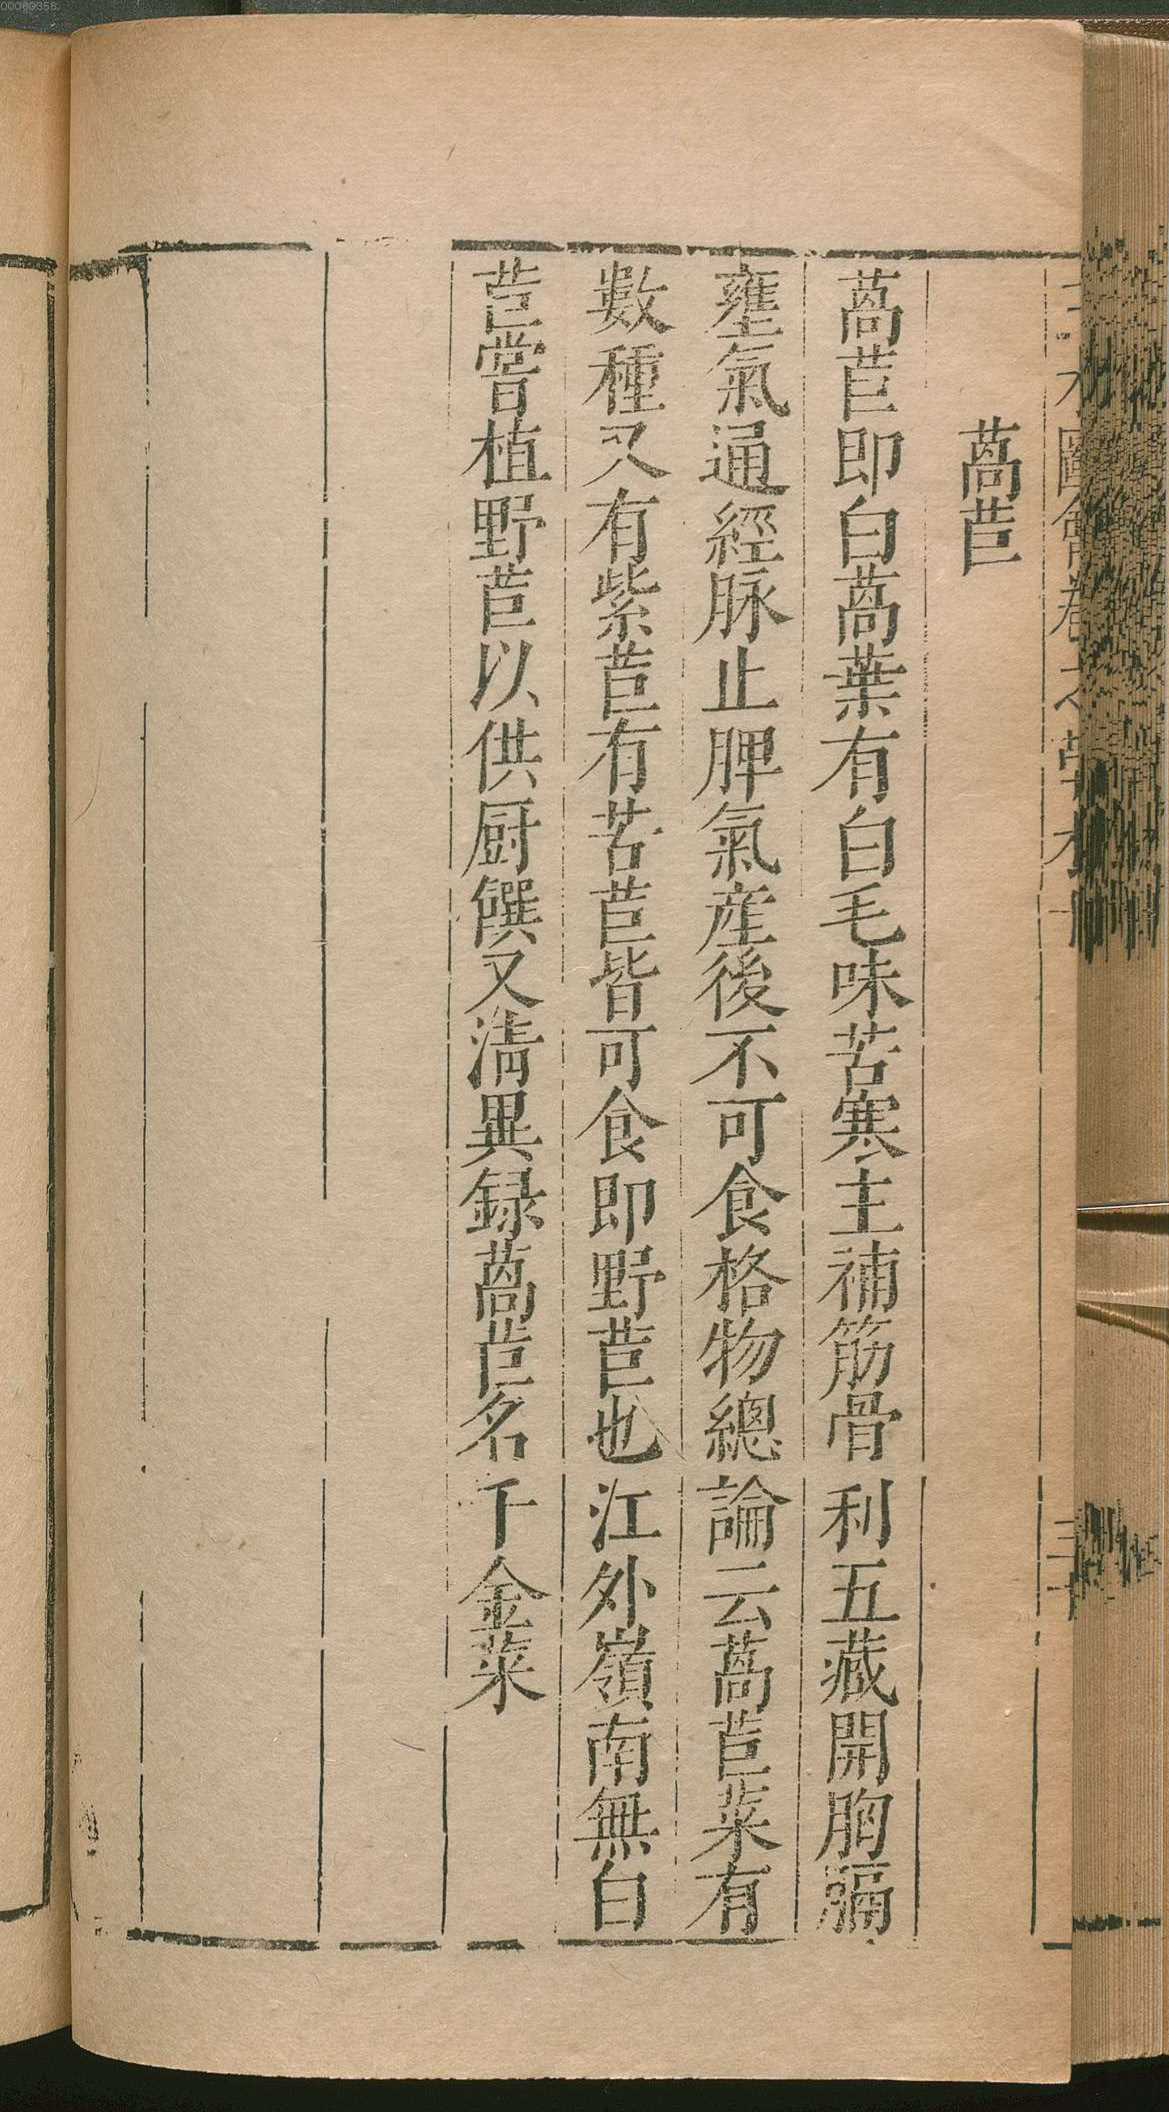 萵苣
萵苣即白萵葉有白毛味苦寒主補筋骨利五藏開胸膈
壅氣通經脉止脾氣産後不可食格物總論云萵苣菜有
數種又有紫苣有苦苣皆可食即野苣也江外嶺南無白
苣嘗植野苣以供厨饌又清異録萵苣名千金菜
00069358